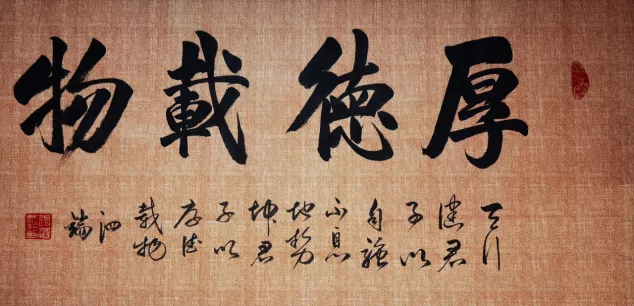 厚德載物
天行
健君
子以
自強
不息
地勢
坤君
子以
厚德
載物
泗